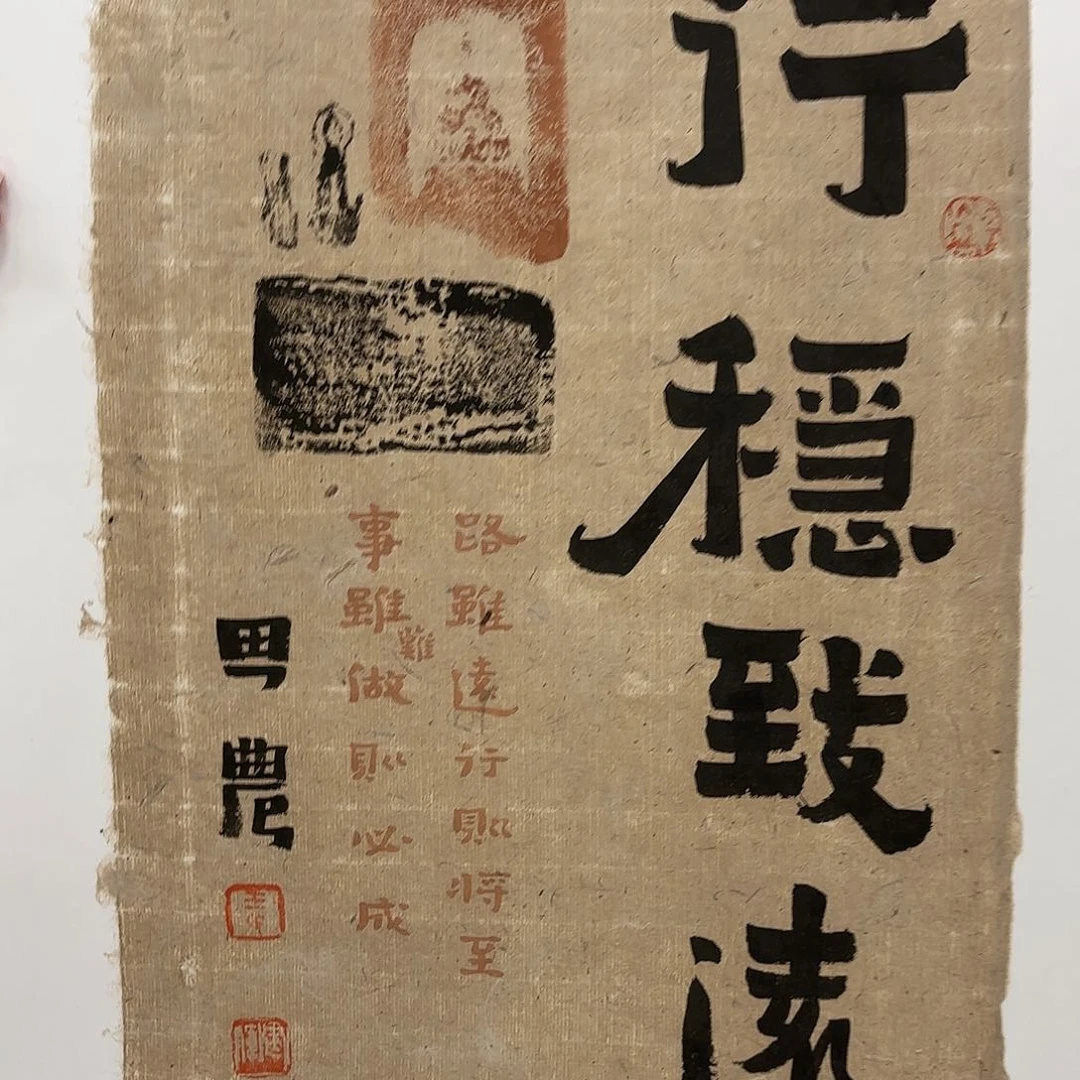 行穩致遠
路雖遠行則將至
事雖難做則必成
農